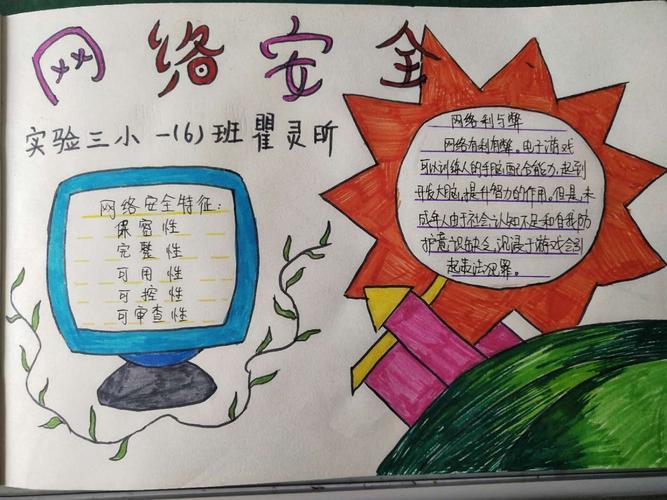 网络安全
实验三小 一(6)班 瞿灵昕
网络安全特征:
保密性
完整性
可用性
可控性
可审查性
网络利与弊
网络有利有弊。电子游戏
可以训练人的手脑配合能力,起到
开发大脑,提升智力的作用。但是,未
成年人由于社会认知不足和自我防
护意识缺乏,沉浸于游戏会引
起违法犯罪。